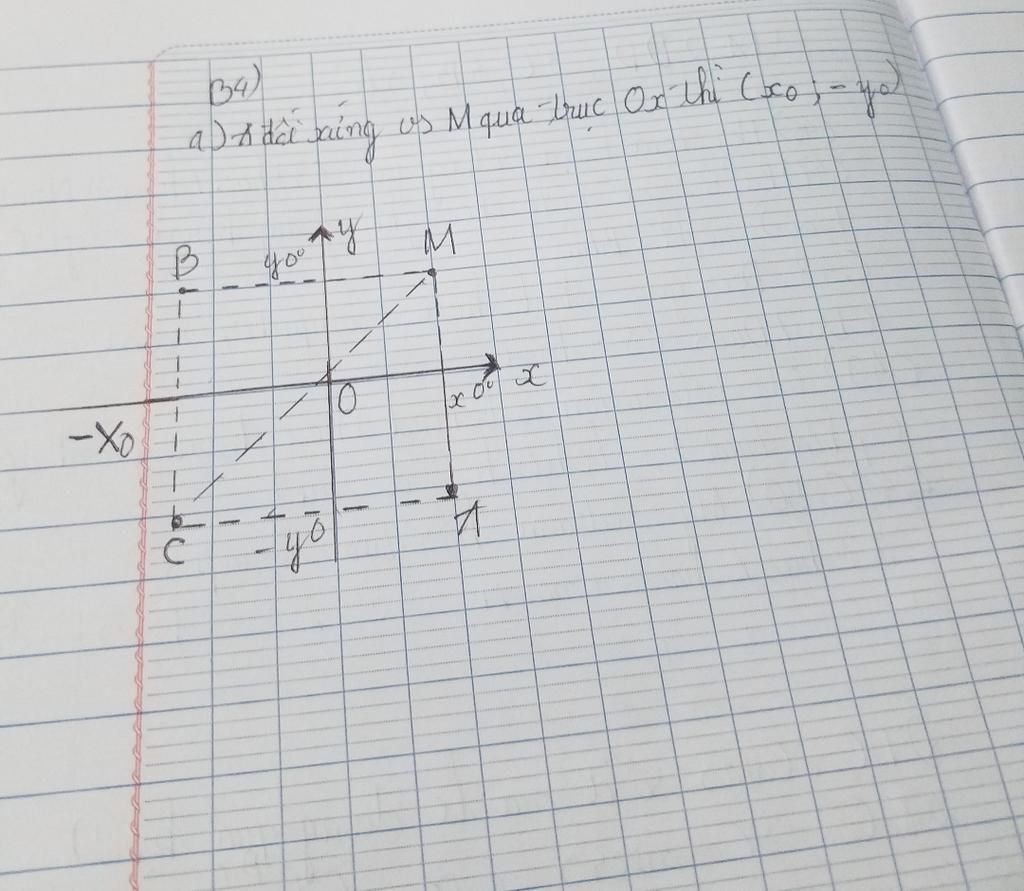 B4)
a) A đối xứng vs M qua trục Ox thì (x₀ ; -y₀)
y
B
y₀
M
O
x₀
x
-X₀
C
-y₀
A